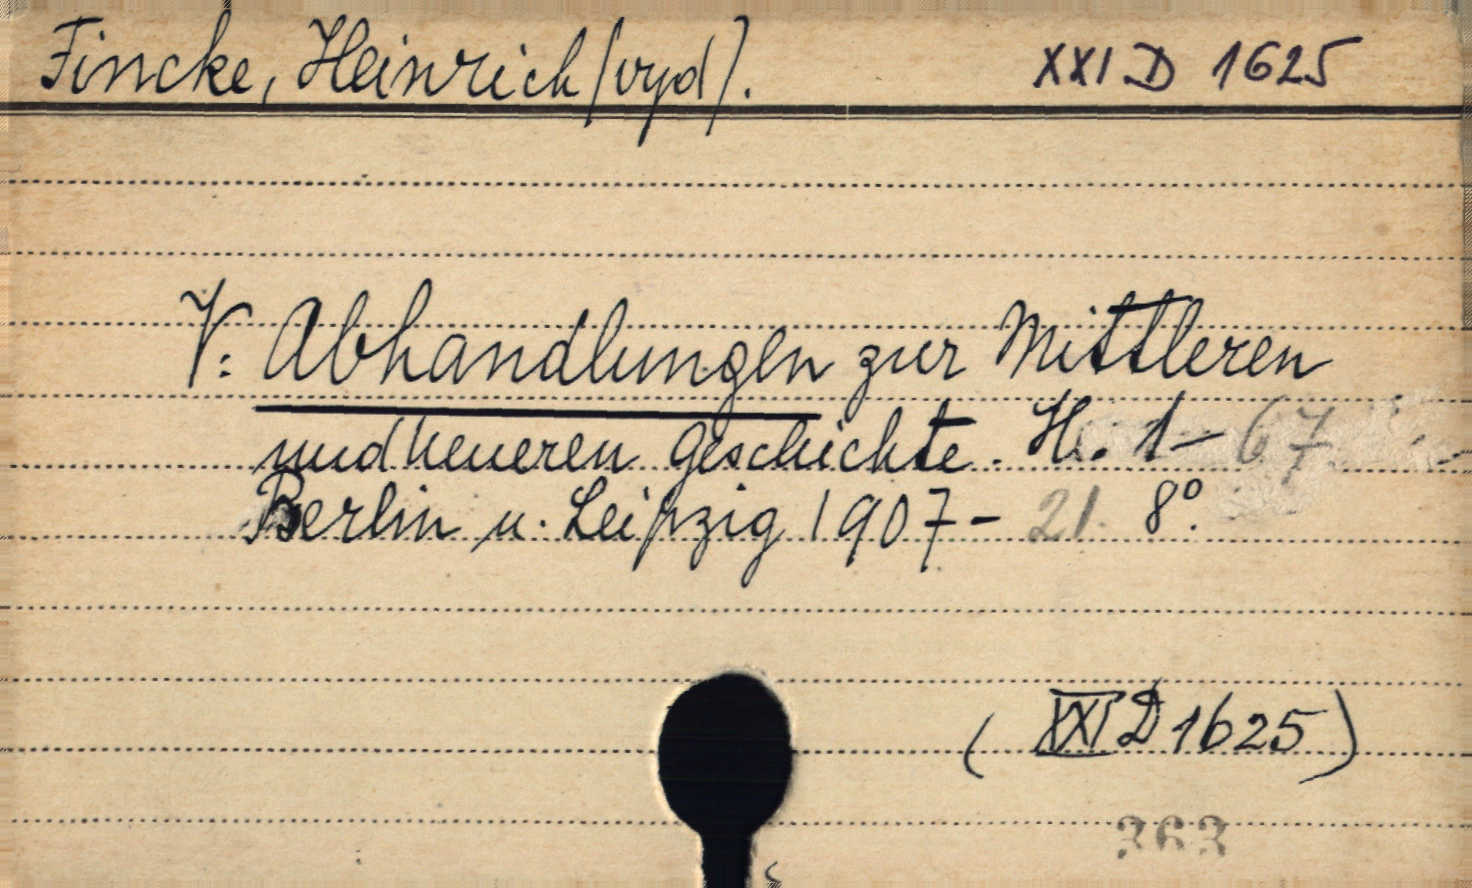 Fincke, Heinrich (vyd). XXI D 1625
V: Abhandlungen zur Mittleren
und neueren Geschichte. H. 1- 67.
Berlin u. Leipzig 1907- 21. 8°.
( XXI D 1625 )
363